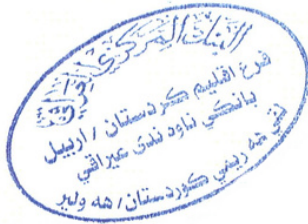 البنك المركزي العراقي
فرع اقليم كردستان / اربيل
بانكي ناوه ندى عيراقي
لقي هه ريمي كوردستان / هه ولير